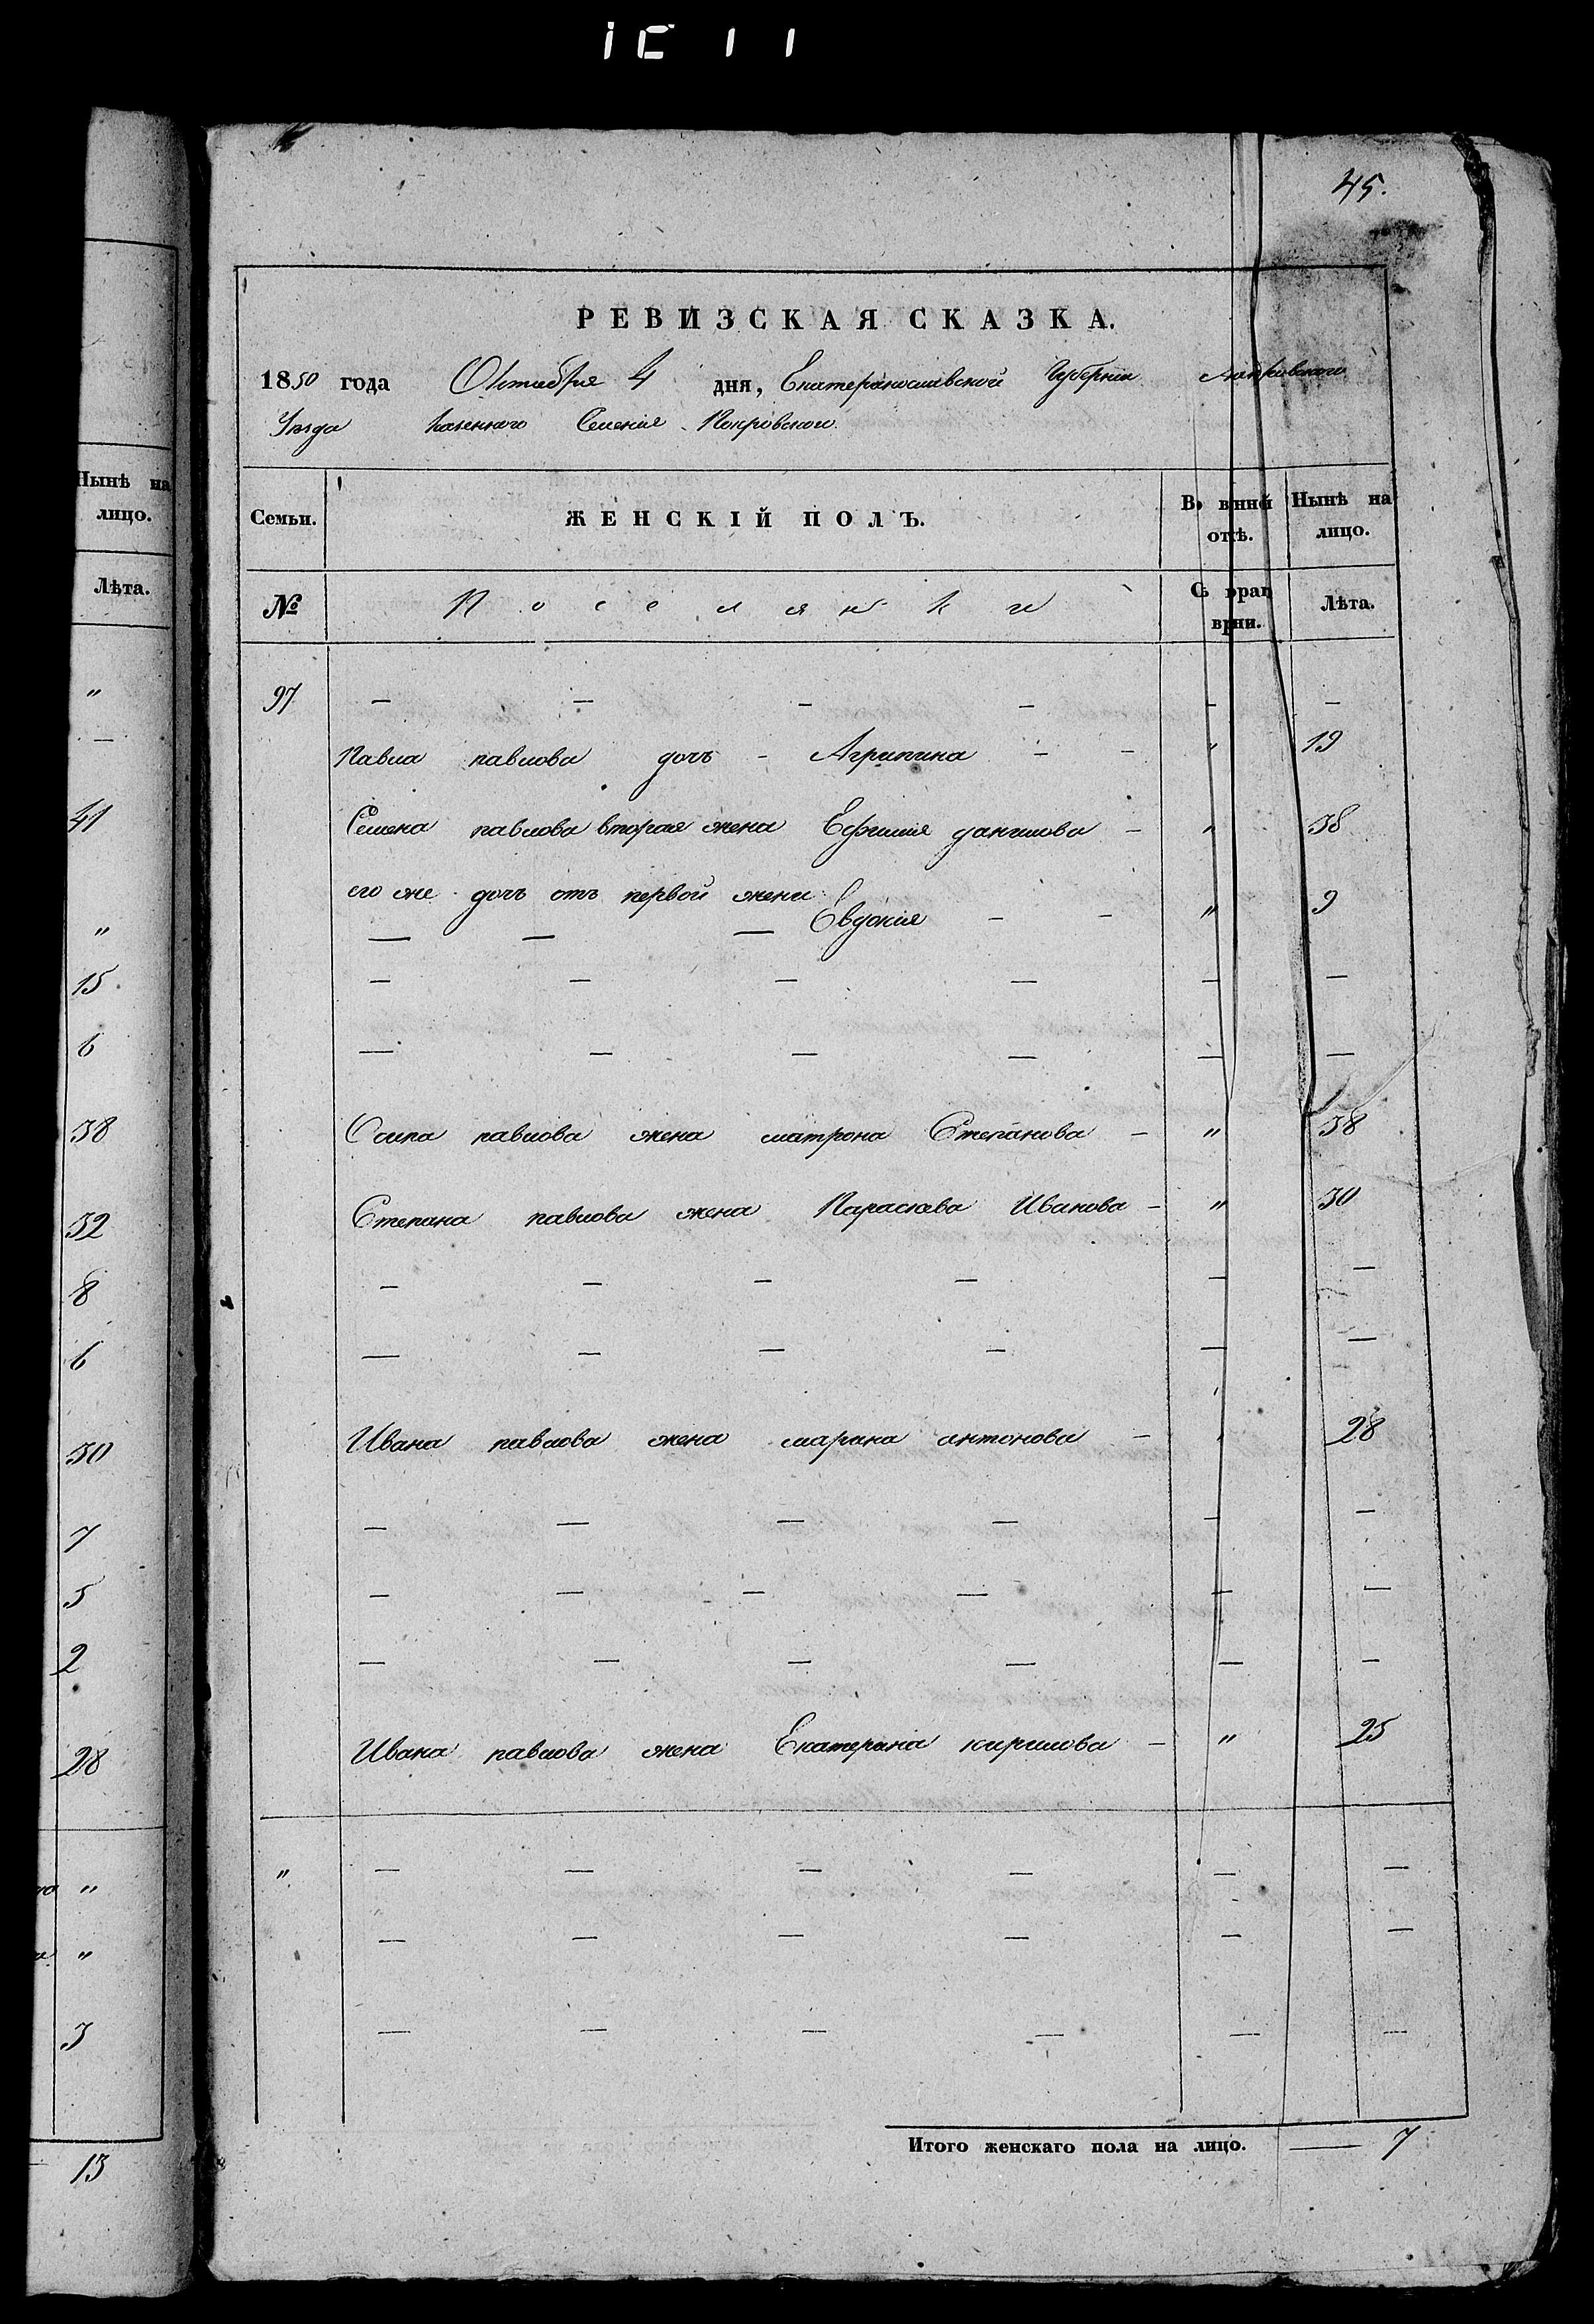 45.
РЕВИЗСКАЯ СКАЗКА.
1850 года Октября 4 дня, Екатеринославской Губернии
Уѣзда Казеннаго Селенія Покровскаго
Нынѣ на лицо.
Лѣта.
"
—
41
"
15
6
38
32
8
6
30
7
5
2
28
"
"
3
13
Семьи. ЖЕНСКІЙ ПОЛЪ. Нынѣ на лицо.
№ Поселянки Лѣта.
97 — — — — — —
Павла павлова дочъ - Агрипина - - " 19
Семена павлова вторая жена Ефимия данилова - " 38
его же дочъ отъ первой жены Евдокия - - " 9
— — —
— — — — — —
— — — — — —
Осипа павлова жена матрона Степанова - " 38
Степана павлова жена Параскева Иванова - " 30
— — — — — —
— — — — — —
Ивана павлова жена марина антонова - " 28
— — — — — —
— — — — — —
— — — — — —
Ивана павлова жена Екатерина кирилова - " 25
" — — — — — —
— — — — — —
— — — — — —
Итого женскаго пола на лицо. — 7